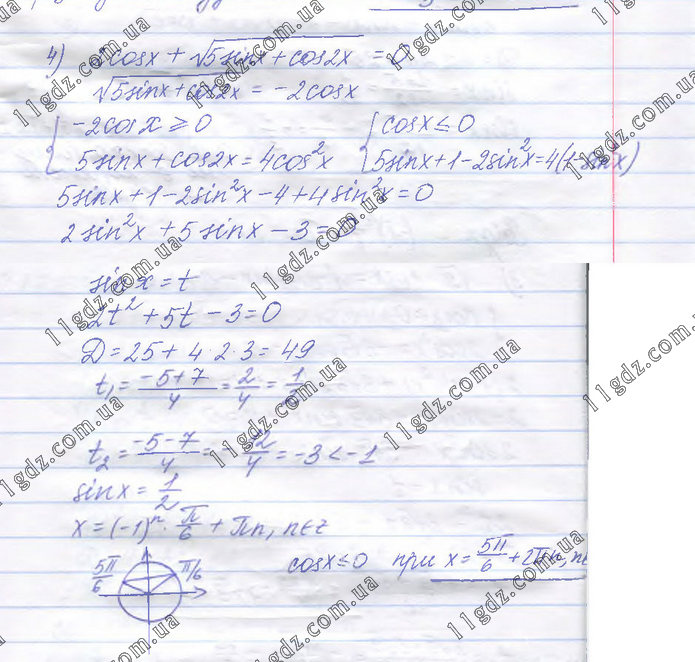 4) 2cosx + √5sinx + cos2x = 0
√5sinx + cos2x = -2cosx
{ -2cosx ≥ 0 { cosx ≤ 0
5sinx + cos2x = 4cos²x 5sinx + 1 - 2sin²x = 4(1 - sin²x)
5sinx + 1 - 2sin²x - 4 + 4sin²x = 0
2sin²x + 5sinx - 3 = 0
sin x = t
2t² + 5t - 3 = 0
D = 25 + 4·2·3 = 49
t₁ = (-5+7)/4 = 2/4 = 1/2
t₂ = (-5-7)/4 = -12/4 = -3 < -1
sinx = 1/2
x = (-1)ⁿ · π/6 + πn, n∈z
5π/6 π/6 cosx ≤ 0 при x = 5π/6 + 2πn, n∈
11gdz.com.ua